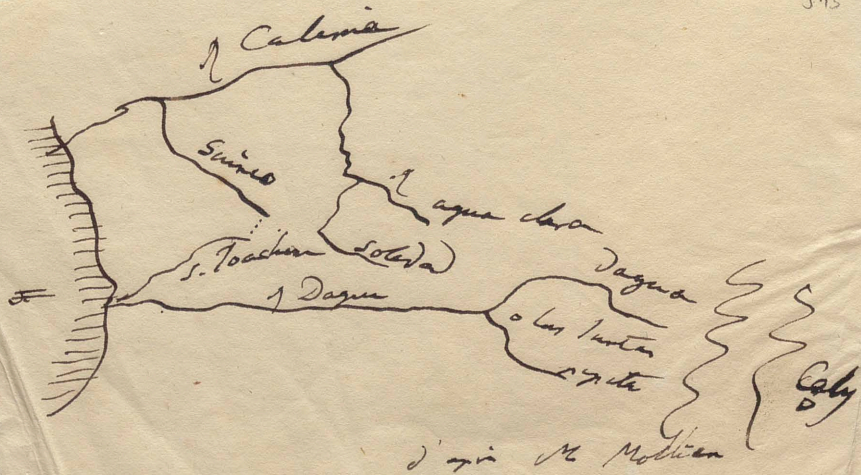 R Calima
Guineo
R agua clara
S. Joachim
Soledad
R Dagua
Dagua
las Juntas
Caly
d'après M Mollien